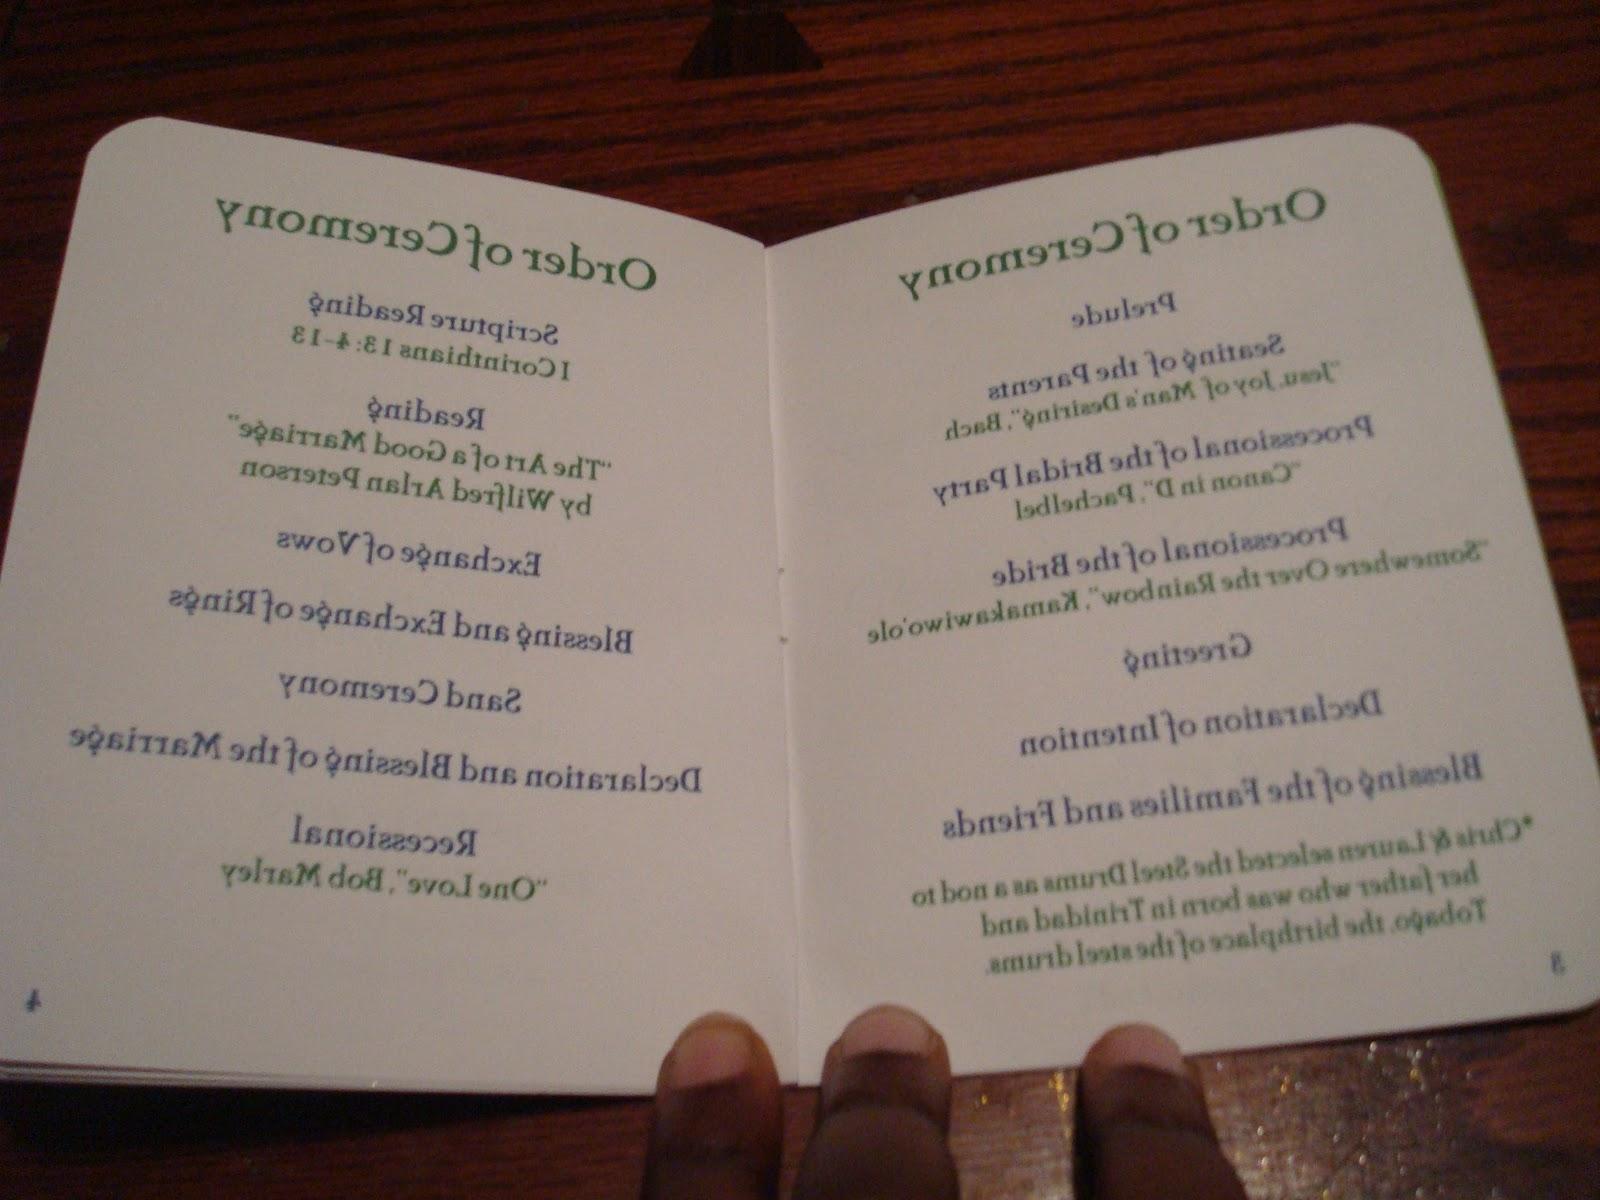 Order of Ceremony
Prelude
Seating of the Parents
"Jesu, Joy of Man's Desiring", Bach
Processional of the Bridal Party
"Canon in D", Pachelbel
Processional of the Bride
"Somewhere Over the Rainbow", Kamakawiwo'ole
Greeting
Declaration of Intention
Blessing of the Families and Friends
*Chris & Lauren selected the Steel Drums as a nod to
her father who was born in Trinidad and
Tobago, the birthplace of the steel drums.
3
Order of Ceremony
Scripture Reading
1 Corinthians 13: 4-13
Reading
"The Art of a Good Marriage"
by Wilfred Arlan Peterson
Exchange of Vows
Blessing and Exchange of Rings
Sand Ceremony
Declaration and Blessing of the Marriage
Recessional
"One Love", Bob Marley
4